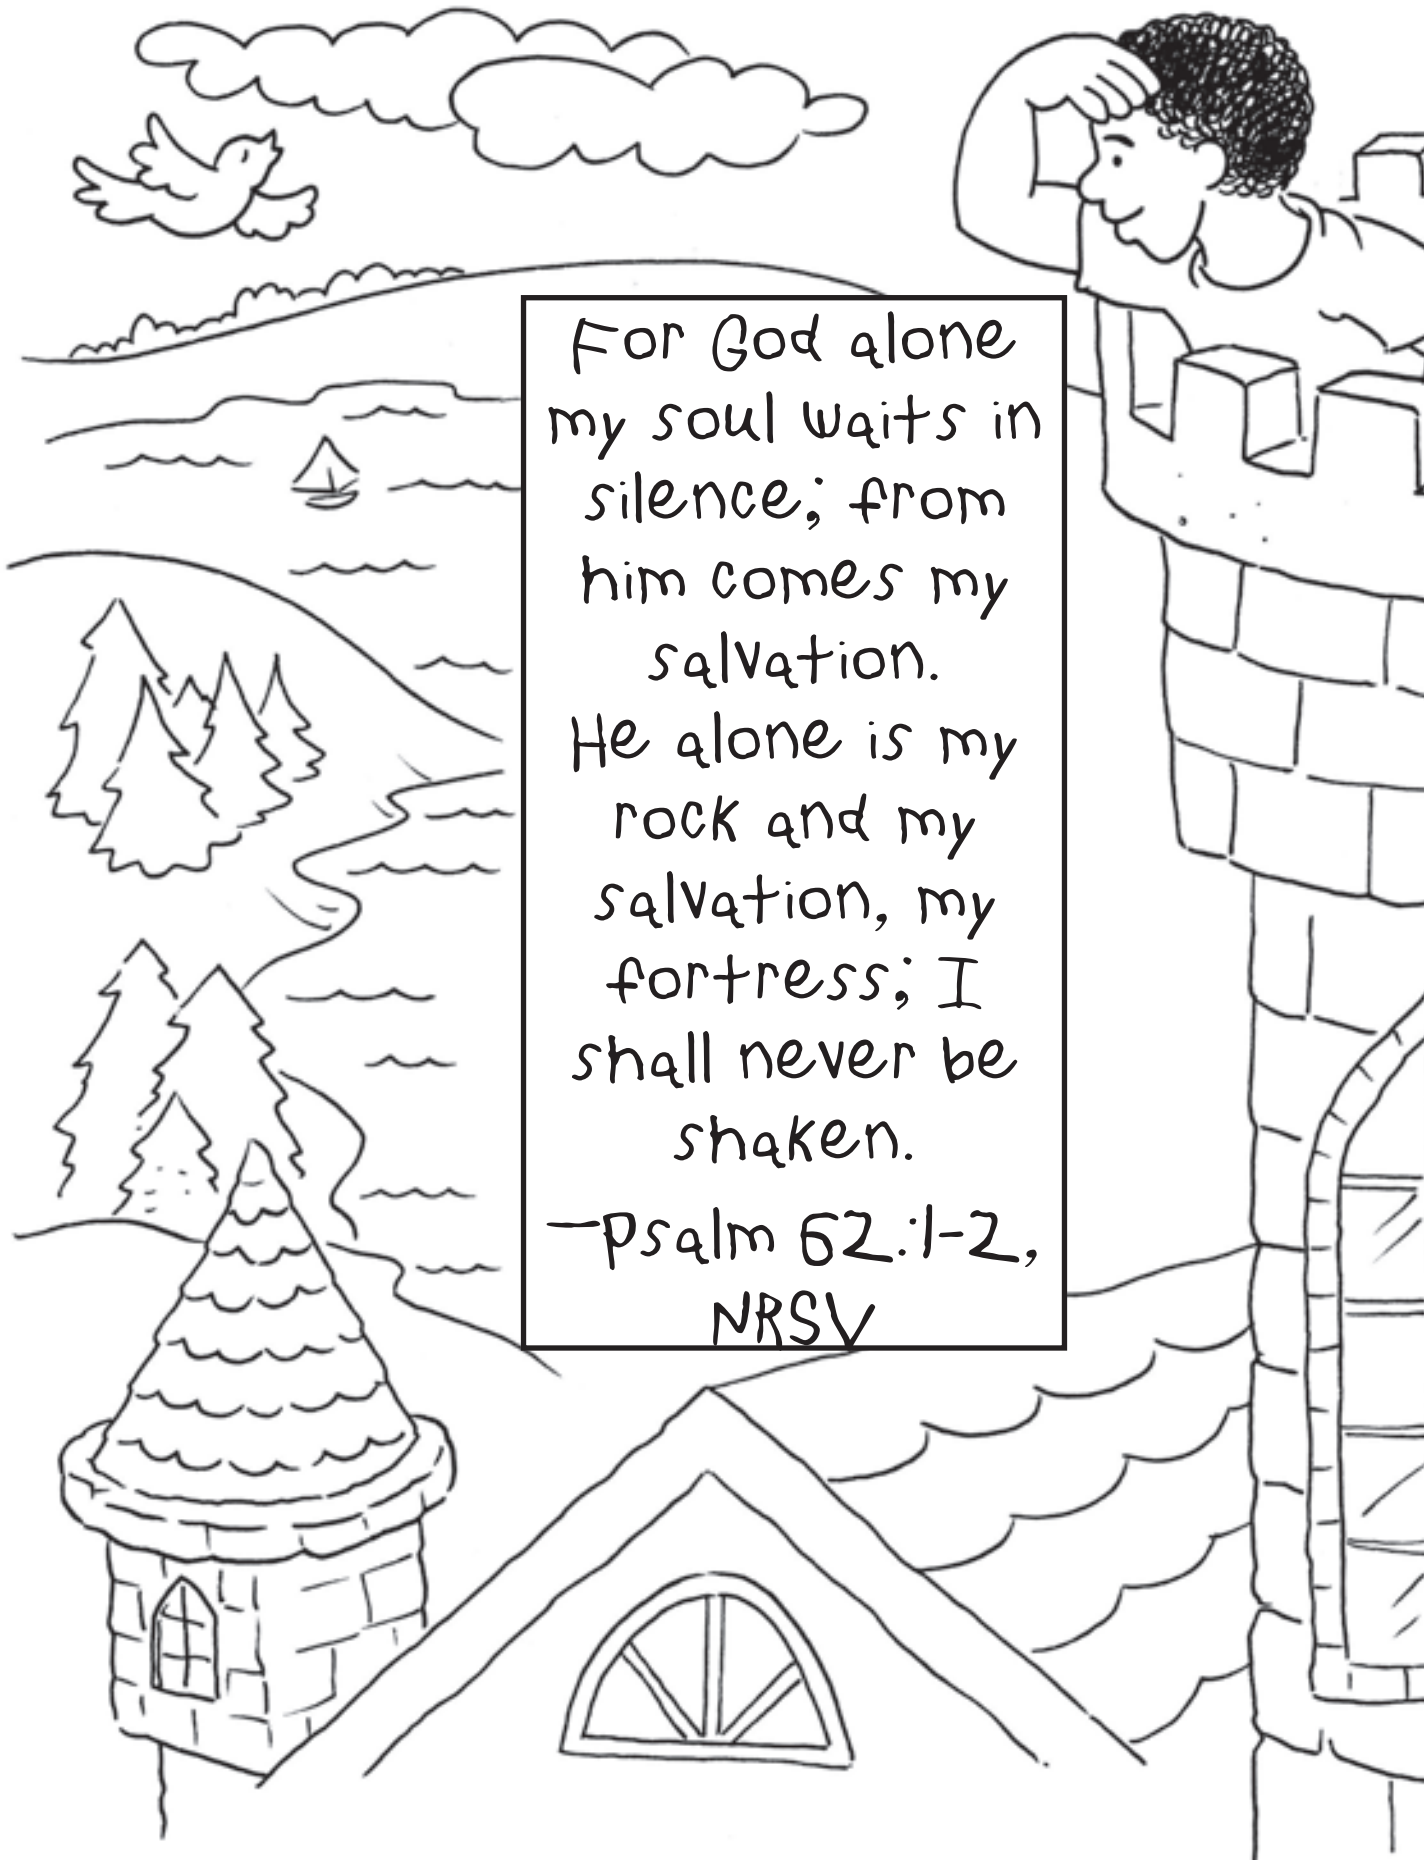 For God alone
my soul waits in
silence; from
him comes my
salvation.
He alone is my
rock and my
salvation, my
fortress; I
shall never be
shaken.
—Psalm 62:1-2,
NRSV